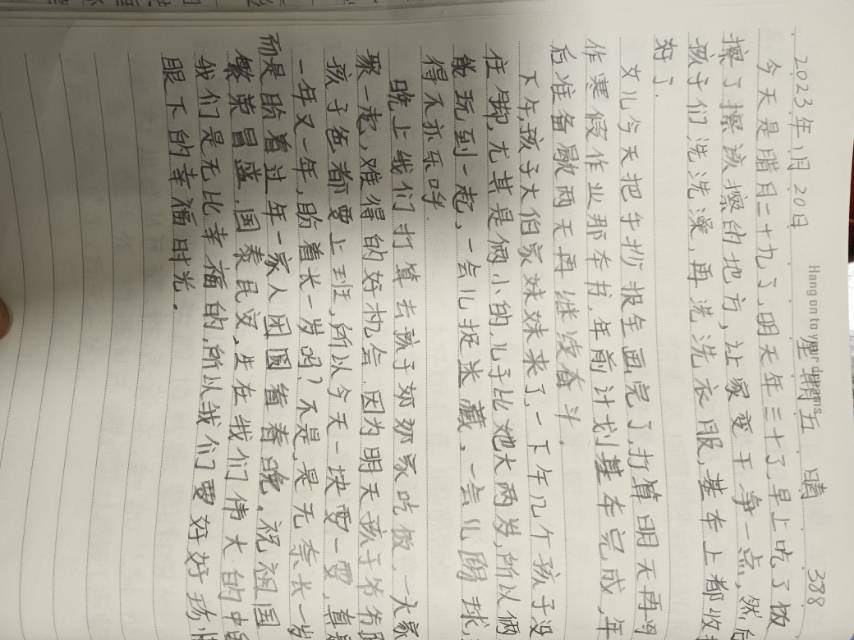 2023年1月20日 星期五 晴 388
Hang on to your dreams
今天是腊月二十九了,明天年三十了,早上吃了饭
擦了擦该擦的地方,让家变干净一点,然后
孩子们洗洗澡,再洗洗衣服,基本上都收
好了.
女儿今天把手抄报全画完了,打算明天再写
作寒假作业那本书,年前计划基本完成,年
后准备歇两天再继续奋斗.
下午,孩子大伯家妹妹来了,一下午几个孩子没
住脚,尤其是俩小的,儿子比她大两岁,所以俩
能玩到一起,一会儿捉迷藏,一会儿踢球,
得不亦乐呼.
晚上我们打算去孩子奶奶家吃饭,一大家
聚一起,难得的好机会.因为明天孩子爷爷跟
孩子爸都要上班,所以今天一块耍一耍,真
一年又一年,盼着长一岁吗?不是,是无奈长一岁
而是盼着过年一家人团圆看春晚,祝祖国
繁荣昌盛,国泰民安,生在我们伟大的中
我们是无比幸福的,所以我们要好好珍惜
眼下的幸福时光.